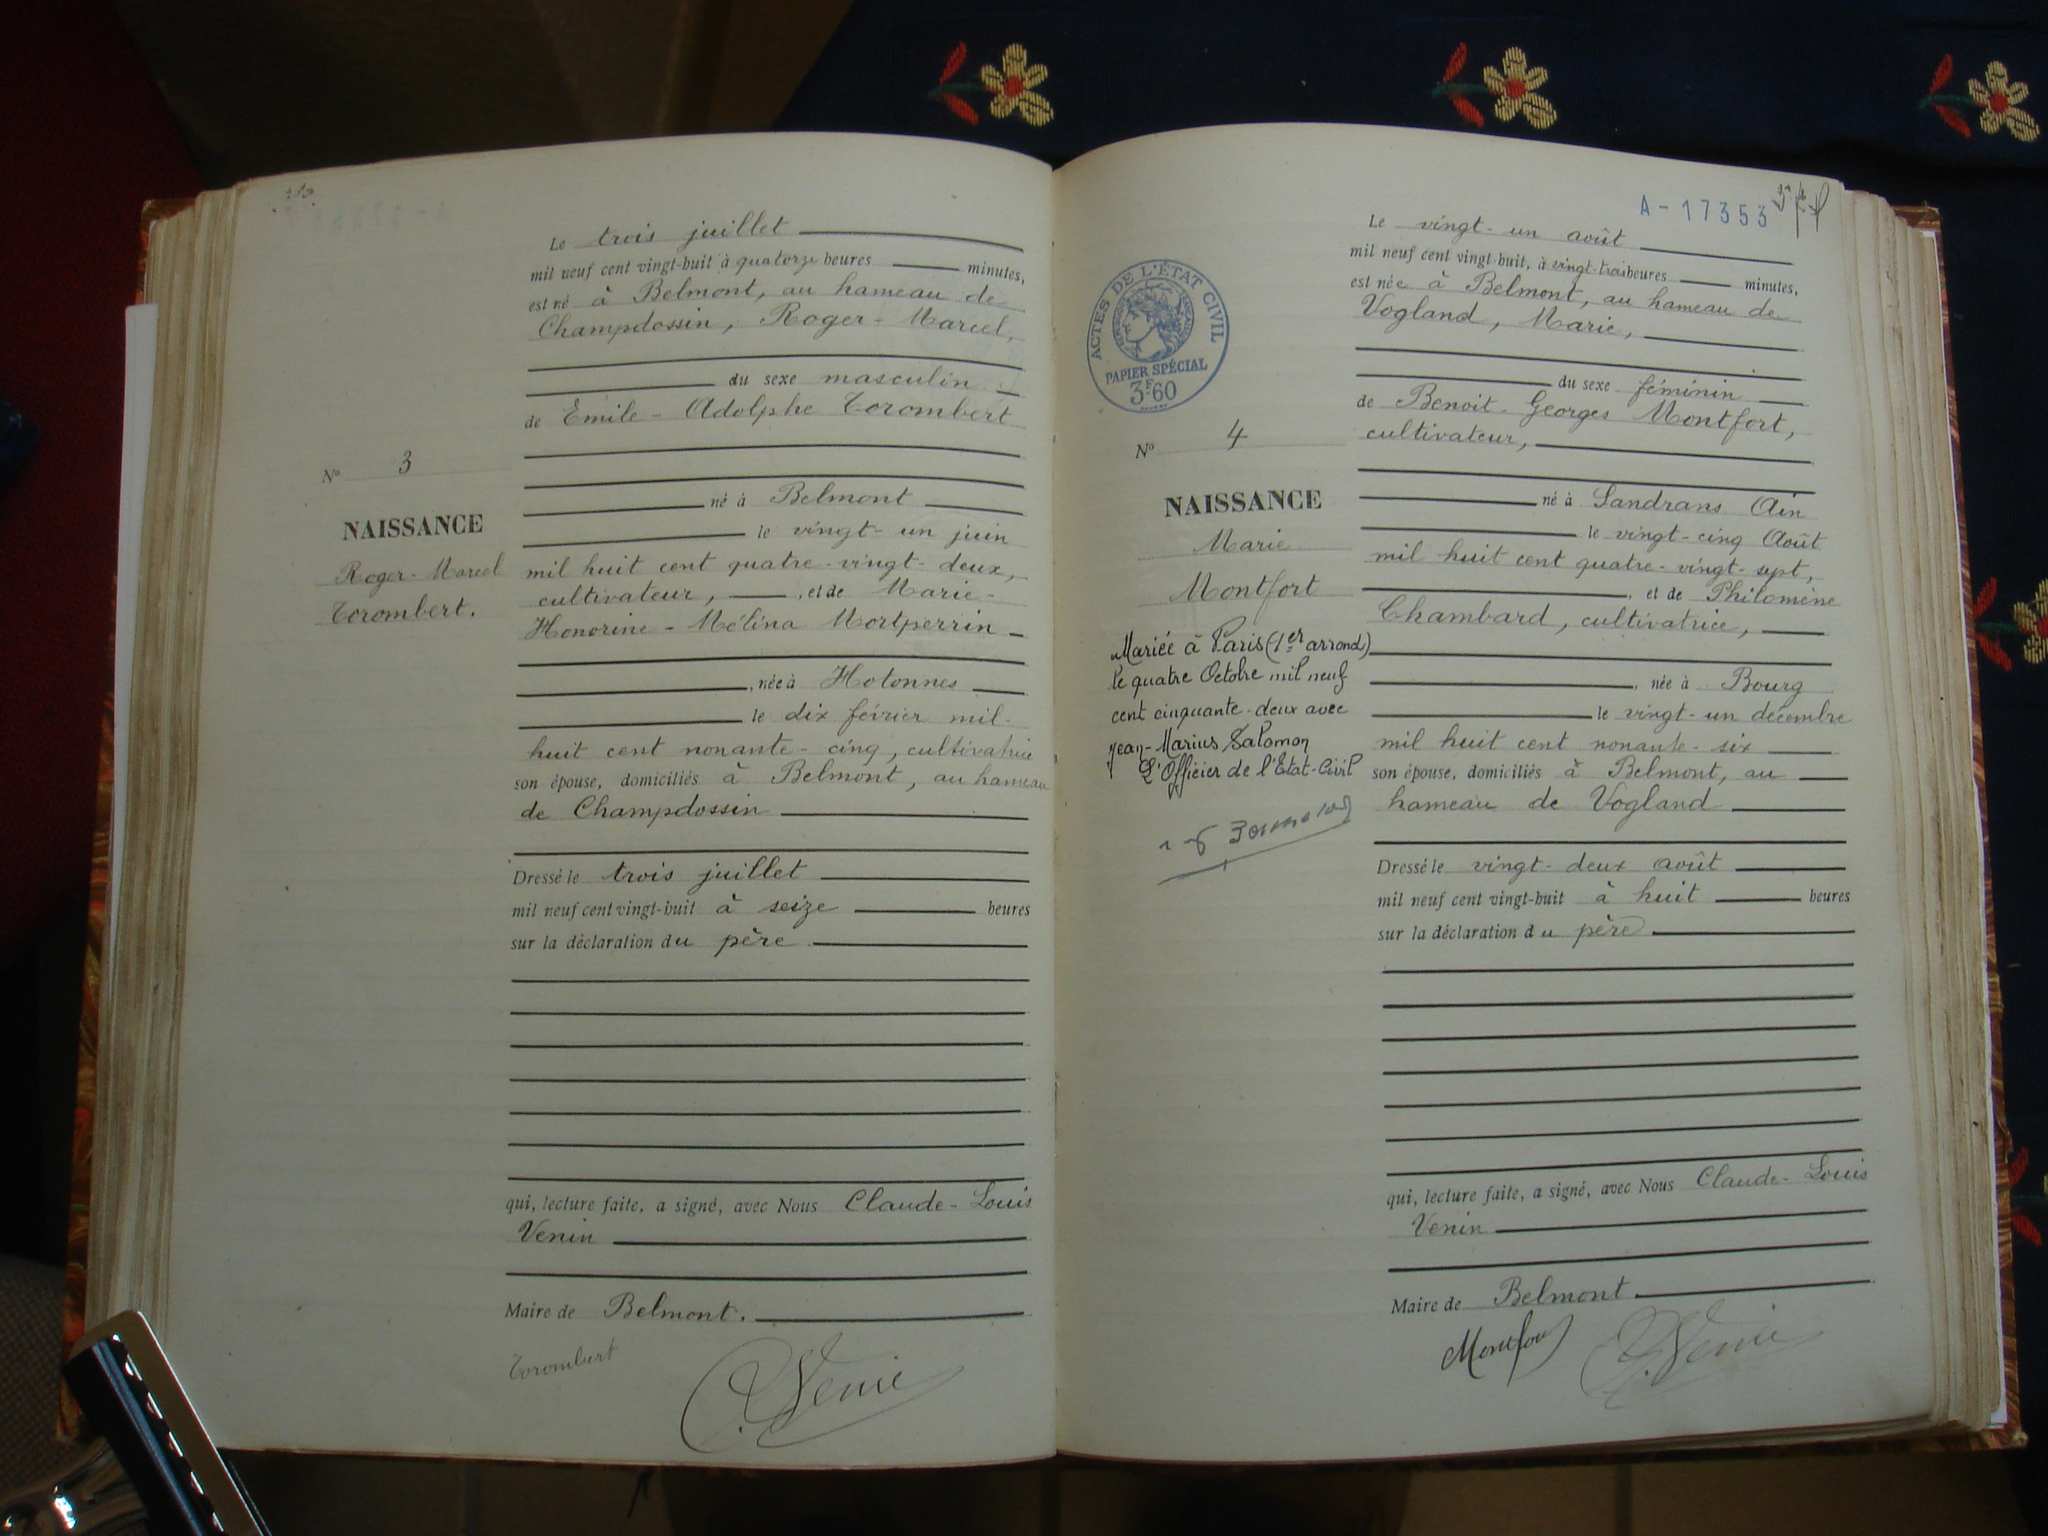 Le trois juillet
mil neuf cent vingt-huit à quatorze heures minutes,
est né à Belmont, au hameau de
Champdossin, Roger-Marcel,
du sexe masculin
de Emile-Adolphe Torombert
né à Belmont
le vingt-un juin
mil huit cent quatre-vingt-deux,
cultivateur, , et de Marie-
Honorine-Mélina Montperrin
, née à Hotonnes
le dix février mil-
huit cent nonante-cinq, cultivatrice
son épouse, domiciliés à Belmont, au hameau
de Champdossin
Dressé le trois juillet
mil neuf cent vingt-huit à seize heures
sur la déclaration du père
qui, lecture faite, a signé, avec Nous Claude-Louis
Venin
Maire de Belmont.
Torombert
Venin
No 3
NAISSANCE
Roger-Marcel
Torombert.
A-17353
Le vingt-un août
mil neuf cent vingt-huit, à vingt-trois heures minutes,
est née à Belmont, au hameau de
Vogland, Marie,
du sexe féminin
de Benoit-Georges Montfort,
cultivateur,
né à Sandrans Ain
le vingt-cinq Août
mil huit cent quatre-vingt-sept,
, et de Philomène
Chambard, cultivatrice,
, née à Bourg
le vingt-un décembre
mil huit cent nonante-six
son épouse, domiciliés à Belmont, au
hameau de Vogland
Dressé le vingt-deux août
mil neuf cent vingt-huit à huit heures
sur la déclaration du père
qui, lecture faite, a signé, avec Nous Claude-Louis
Venin
Maire de Belmont
Montfort
Venin
ACTES DE L'ÉTAT CIVIL
PAPIER SPÉCIAL
3F60
No 4
NAISSANCE
Marie
Montfort
Mariée à Paris (1er arrond)
le quatre Octobre mil neuf
cent cinquante-deux avec
Jean-Marius Salomon
L'Officier de l'Etat-Civil